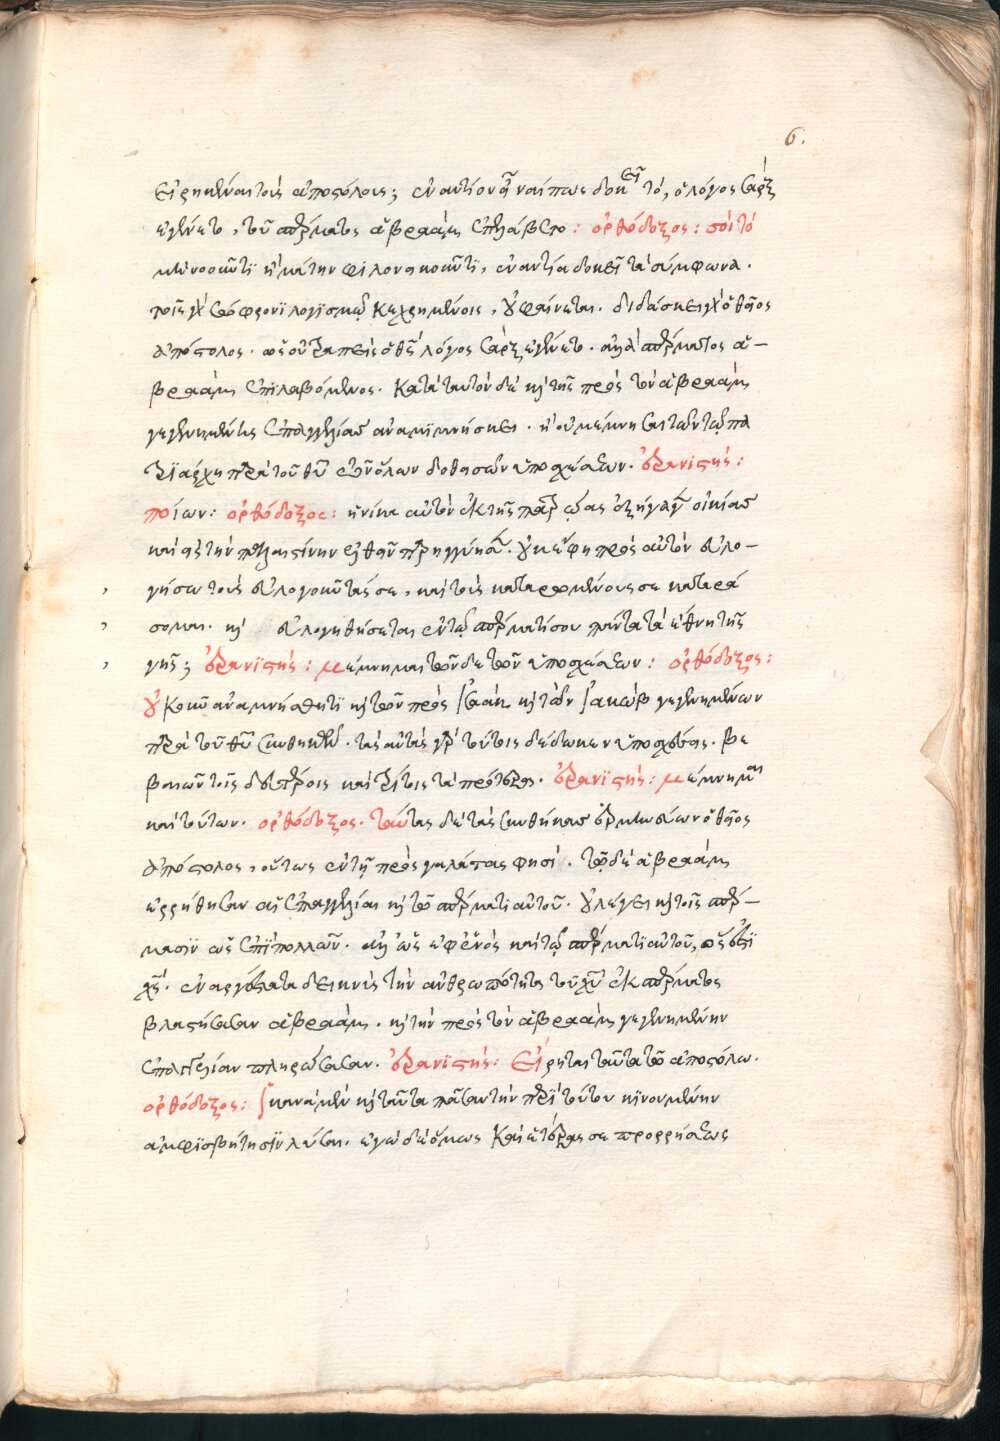 εἰρημέναι τοῖς ἀποστόλοις; ἐναντίον γὰρ ναί πως δοκεῖ τό, ὁ λόγος σὰρξ
ἐγένετο, τοῦ σπέρματος ἀβραὰμ ἐπελάβετο: ὀρθόδοξος: σοὶ τὸ
μὲν νοοῦντι ἢ μάτην φιλονεικοῦντι, ἐναντία δοκεῖ τὰ σύμφωνα.
τοῖς γὰρ σώφρονι λογισμῷ κεχρημένοις, οὐ φαίνεται. διδάσκει γὰρ ὁ θεῖος
ἀπόστολος. ὡς οὐ τραπεὶς ὁ θεὸς λόγος σὰρξ ἐγένετο. ἀλλὰ σπέρματος ἀ-
βραὰμ ἐπιλαβόμενος. κατὰ ταυτὸν δὲ καὶ τῆς πρὸς τὸν ἀβραὰμ
γεγενημένης ἐπαγγελίας ἀναμιμνήσκει. ἢ οὐ μέμνησαι τῶν τῷ πα
τριάρχῃ παρὰ τοῦ θεοῦ τῶν ὅλων δοθησῶν ὑποσχέσεων. ἐρανιστής:
ποίων: ὀρθόδοξος: ἡνίκα αὐτὸν ἐκ τῆς πατρώας ἐξήγαγεν οἰκίας
καὶ εἰς τὴν παλαιστίνην ἐλθεῖν παρηγγύησεν. οὐκ ἔφη πρὸς αὐτὸν εὐλο-
γήσω τοὺς εὐλογοῦντάς σε, καὶ τοὺς καταρωμένους σε καταρά
σομαι. καὶ εὐλογηθήσεται ἐν τῷ σπέρματί σου πάντα τὰ ἔθνη τῆς
γῆς; ἐρανιστής: μέμνημαι τῶνδε τῶν ὑποσχέσεων: ὀρθόδοξος:
οὐκοῦν ἀναμνήσθητι καὶ τῶν πρὸς ἰσαὰκ καὶ τὸν ἰακὼβ γεγενημένων
παρὰ τοῦ θεοῦ συνθηκῶν. τὰς αὐτὰς γὰρ τούτοις δέδωκεν ὑποσχέσεις. βε
βαιῶν τοῖς δευτέροις καὶ τρίτοις τὰ πρότερα. ἐρανιστής: μέμνημαι
καὶ τούτων. ὀρθόδοξος. ταύτας δὲ τὰς συνθήκας ἑρμηνεύων ὁ θεῖος
ἀπόστολος, οὕτως ἐν τῇ πρὸς γαλάτας φησί. τῷ δὲ ἀβραὰμ
ἐρρήθησαν αἱ ἐπαγγελίαι καὶ τῷ σπέρματι αὐτοῦ. οὐ λέγει καὶ τοῖς σπέρ-
μασιν ὡς ἐπὶ πολλῶν. ἀλλ' ὡς ἐφ' ἑνὸς καὶ τῷ σπέρματι αὐτοῦ, ὅς ἐστι
χς. ἐναργέστατα δεικνὺς τὴν ἀνθρωπότητα τοῦ χυ ἐκ σπέρματος
βλαστήσασαν ἀβραὰμ. καὶ τὴν πρὸς τὸν ἀβραὰμ γεγενημένην
ἐπαγγελίαν πληρώσασαν. ἐρανιστής: εἴρηται ταῦτα τῷ ἀποστόλω.
ὀρθόδοξος: ἱκανὰ μὲν καὶ ταῦτα πᾶσαν τὴν περὶ τούτου κινουμένην
ἀμφισβήτησιν λύσαι. ἐγὼ δὲ ὅμως καὶ ἑτέρας σε προρρήσεως